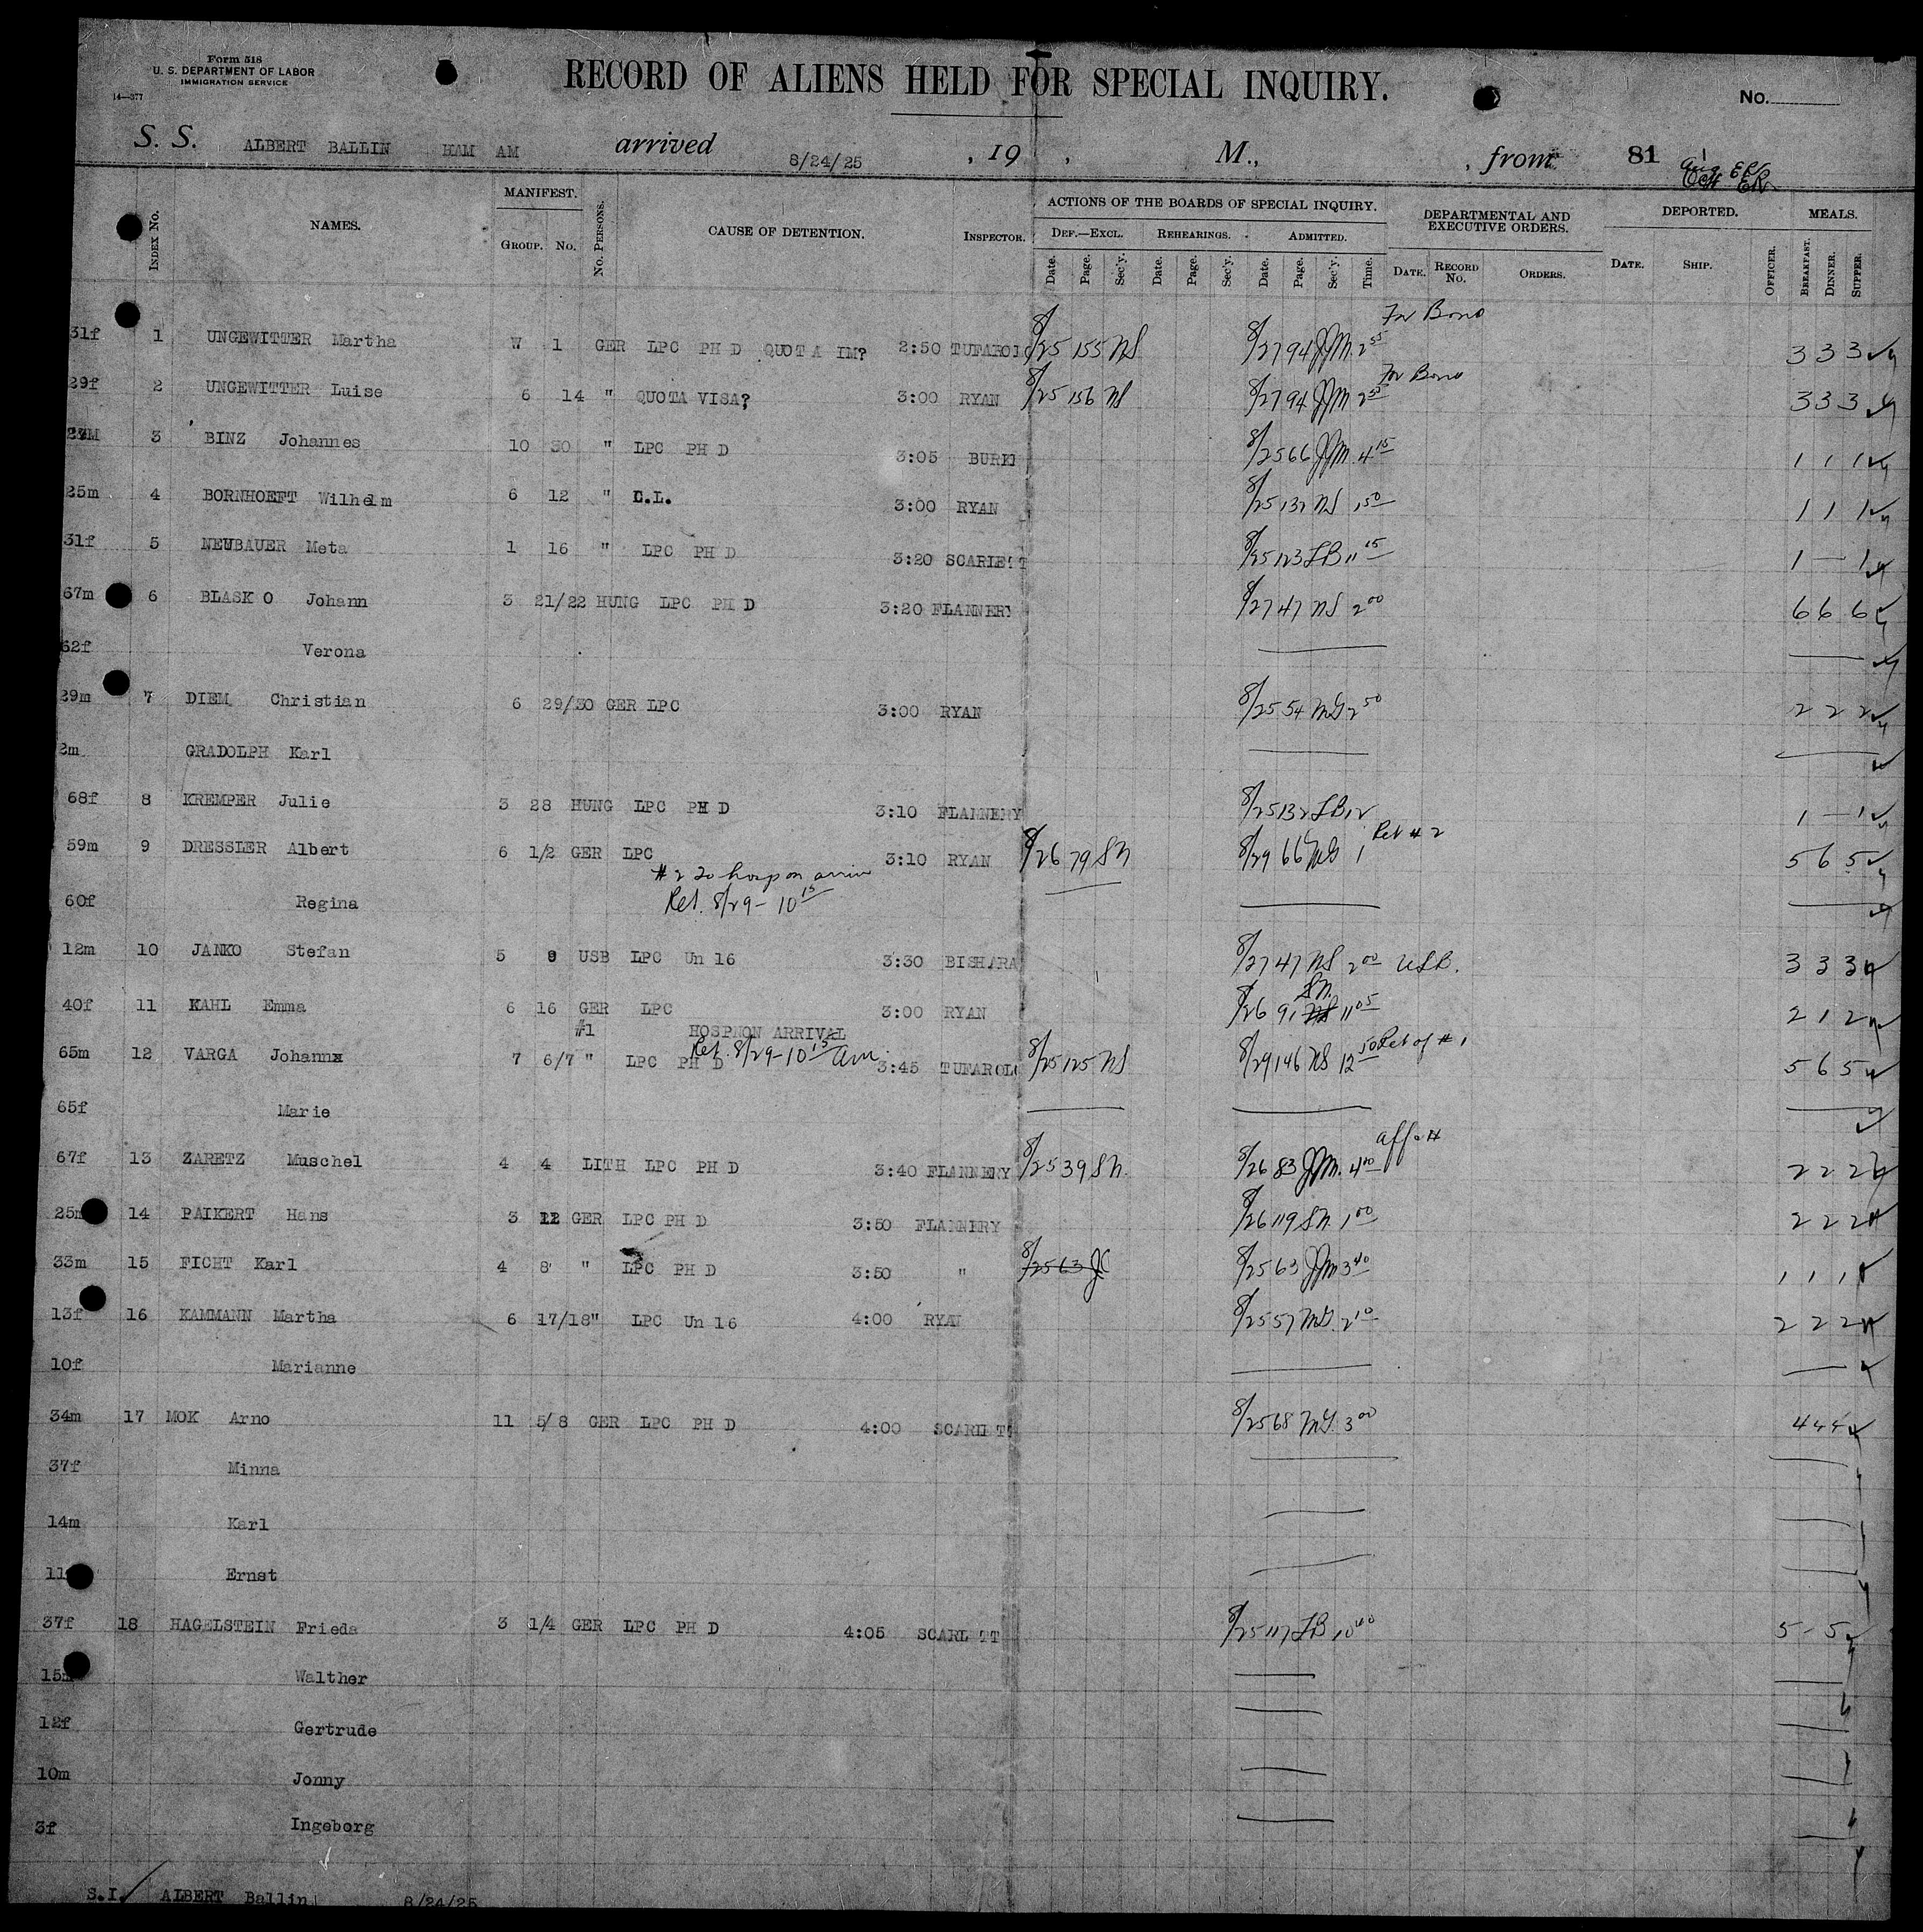 Form 518
U. S. DEPARTMENT OF LABOR
IMMIGRATION SERVICE
14—377
RECORD OF ALIENS HELD FOR SPECIAL INQUIRY.
No.
S. S. ALBERT BALLIN HAM AM arrived 8/24/25 , 19 , M., , from 81
INDEX NO.
NAMES.
MANIFEST.
GROUP. NO.
NO. PERSONS.
CAUSE OF DETENTION.
INSPECTOR.
ACTIONS OF THE BOARDS OF SPECIAL INQUIRY.
DEF.—EXCL. REHEARINGS. ADMITTED.
Date. Page. Sec'y. Date. Page. Sec'y. Date. Page. Sec'y. Time.
DEPARTMENTAL AND EXECUTIVE ORDERS.
DATE. RECORD NO. ORDERS.
DEPORTED.
DATE. SHIP. OFFICER.
MEALS.
BREAKFAST. DINNER. SUPPER.
For Bond
31f 1 UNGEWITTER Martha W 1 GER LPC PH D QUOTA IM? 2:50 TUFAROLO 8/25 155 NS 8/27 94 JJM 2 55 3 3 3
For Bond
29f 2 UNGEWITTER Luise 6 14 " QUOTA VISA? 3:00 RYAN 8/25 156 NS 8/27 94 JJM 2 55 3 3 3
3 BINZ Johannes 10 30 " LPC PH D 3:05 BURKE 8/25 66 JJM 4 15 1 1 1
25m 4 BORNHOEFT Wilhelm 6 12 " C.L. 3:00 RYAN 8/25 132 NS 1 50 1 1 1
31f 5 NEUBAUER Meta 1 16 " LPC PH D 3:20 SCARLETT 8/25 123 LB 11 15 1 — 1
67m 6 BLASKO Johann 3 21/22 HUNG LPC PH D 3:20 FLANNERY 8/27 47 NS 2 00 6 6 6
62f Verona
29m 7 DIEM Christian 6 29/30 GER LPC 3:00 RYAN 8/25 54 MG 2 50 2 2 2
2m GRADOLPH Karl
68f 8 KREMPER Julie 3 28 HUNG LPC PH D 3:10 FLANNERY 8/25 132 LB 12 1 — 1
59m 9 DRESSLER Albert 6 1/2 GER LPC 3:10 RYAN 8/26 79 SN 8/29 66 MG 1 Ret # 2 5 6 5
# 2 to hosp on arrival
60f Regina Rel. 8/29 - 10 15
12m 10 JANKO Stefan 5 9 USB LPC Un 16 3:30 BISHARA 8/27 47 NS 2 00 USB. 3 3 3
40f 11 KAHL Emma 6 16 GER LPC 3:00 RYAN 8/26 91 SN 11 05 2 1 2
#1 HOSPNON ARRIVAL
Rel. 8/29-10 15 am.
65m 12 VARGA Johann 7 6/7 " LPC PH D 3:45 TUFAROLO 8/25 125 NS 8/29 146 NS 12 50 Ret of # 1 5 6 5
65f Marie
67f 13 ZARETZ Muschel 4 4 LITH LPC PH D 3:40 FLANNERY 8/25 39 SN. 8/26 83 JJM. 4 40 2 2 2
25m 14 PAIKERT Hans 3 12 GER LPC PH D 3:50 FLANNERY 8/26 119 SN 1 00 2 2 2
33m 15 FICHT Karl 4 8 " LPC PH D 3:50 " 8/25 63 JC 8/25 63 JJM 3 40 1 1 1
13f 16 KAMMANN Martha 6 17/18" LPC Un 16 4:00 RYAN 8/25 57 MG. 2 10 2 2 2
10f Marianne
34m 17 MOK Arno 11 5/8 GER LPC PH D 4:00 SCARLETT 8/25 68 MG. 3 00 4 4 4
37f Minna
14m Karl
11 Ernst
37f 18 HAGELSTEIN Frieda 3 1/4 GER LPC PH D 4:05 SCARLETT 8/25 117 LB 10 40 5 - 5
15m Walther
12f Gertrude
10m Jonny
3f Ingeborg
S.I. ALBERT Ballin 8/24/25